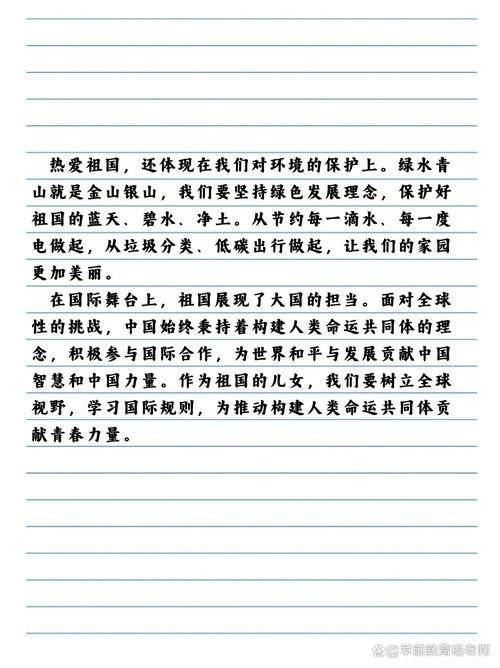 热爱祖国，还体现在我们对环境的保护上。绿水青
山就是金山银山，我们要坚持绿色发展理念，保护好
祖国的蓝天、碧水、净土。从节约每一滴水、每一度
电做起，从垃圾分类、低碳出行做起，让我们的家园
更加美丽。
在国际舞台上，祖国展现了大国的担当。面对全球
性的挑战，中国始终秉持着构建人类命运共同体的理
念，积极参与国际合作，为世界和平与发展贡献中国
智慧和中国力量。作为祖国的儿女，我们要树立全球
视野，学习国际规则，为推动构建人类命运共同体贡
献青春力量。
学前教育杨老师